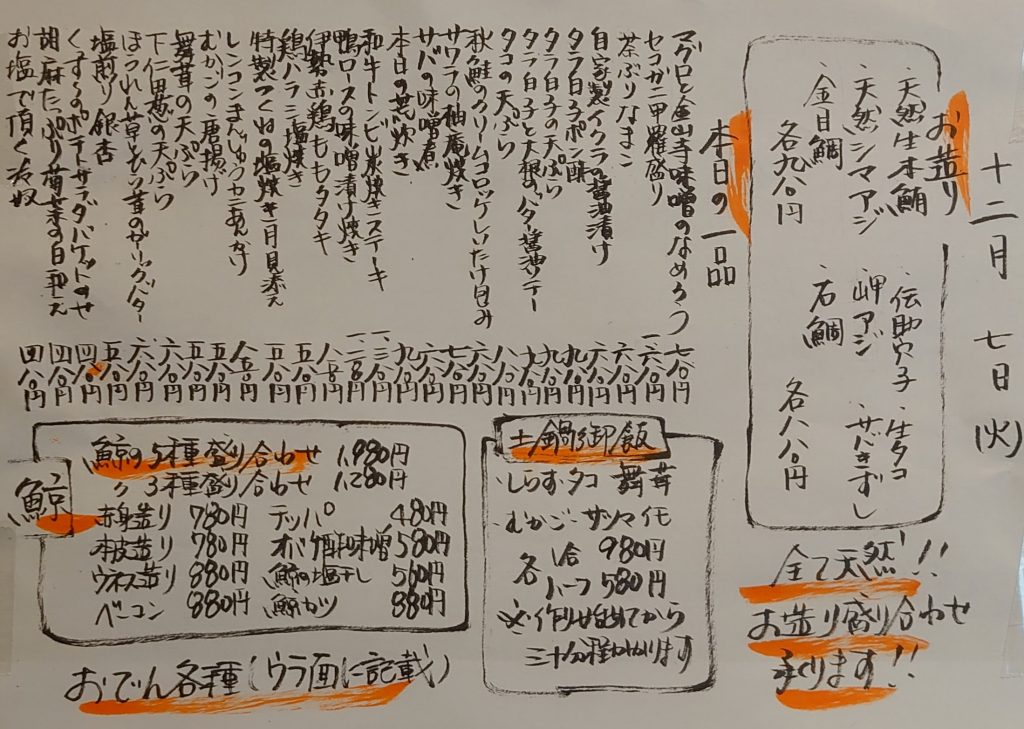 十二月 七日(火)
お造り
・天然生本鮪
・天然シマアジ
・金目鯛
各九八〇円
・伝助穴子 ・生タコ
・岬アジ ・サバきずし
・石鯛
各八八〇円
全て天然!!
お造り盛り合わせ
承ります!!
本日の一品
マグロと金山寺味噌のなめろう 七八〇円
セコガニ甲羅盛り
茶ぶりなまこ 六八〇円
自家製イクラの醤油漬け
タラ白子ポン酢
タラ白子の天ぷら
タラ白子と大根のバター醤油ソテー
タコの天ぷら
秋鮭のクリームコロッケしいたけ包み
サワラの柚庵焼き
サバの味噌煮
本日の煮炊き
和牛トンビ炭焼きステーキ
鴨ロースの味噌漬け焼き
伊勢赤鶏ももタタキ
鶏ハラミ塩焼き
特製つくねの塩焼き月見添え
レンコンまんじゅうカニあんかけ
むかごの唐揚げ
舞茸の天ぷら
下仁田葱の天ぷら
ほうれん草とひら茸のガーリックバター
塩煎り銀杏
くずしポテトサラダバケットのせ
胡麻たっぷり菊菜の白和え 四八〇円
お塩で頂く冷奴 四八〇円
土鍋御飯
・しらす・タコ・舞茸
・むかご・サツマイモ
各 1合 980円
ハーフ 580円
※作り始めてから
三十分程かかります
鯨
鯨の5種盛り合わせ 1,980円
〃 3種盛り合わせ 1,280円
赤身造り 780円 テッパ 480円
本皮造り 780円 オバケ酢味噌 580円
ウネス造り 880円 鯨の塩干し 560円
ベーコン 880円 鯨カツ 880円
おでん各種(ウラ面に記載)